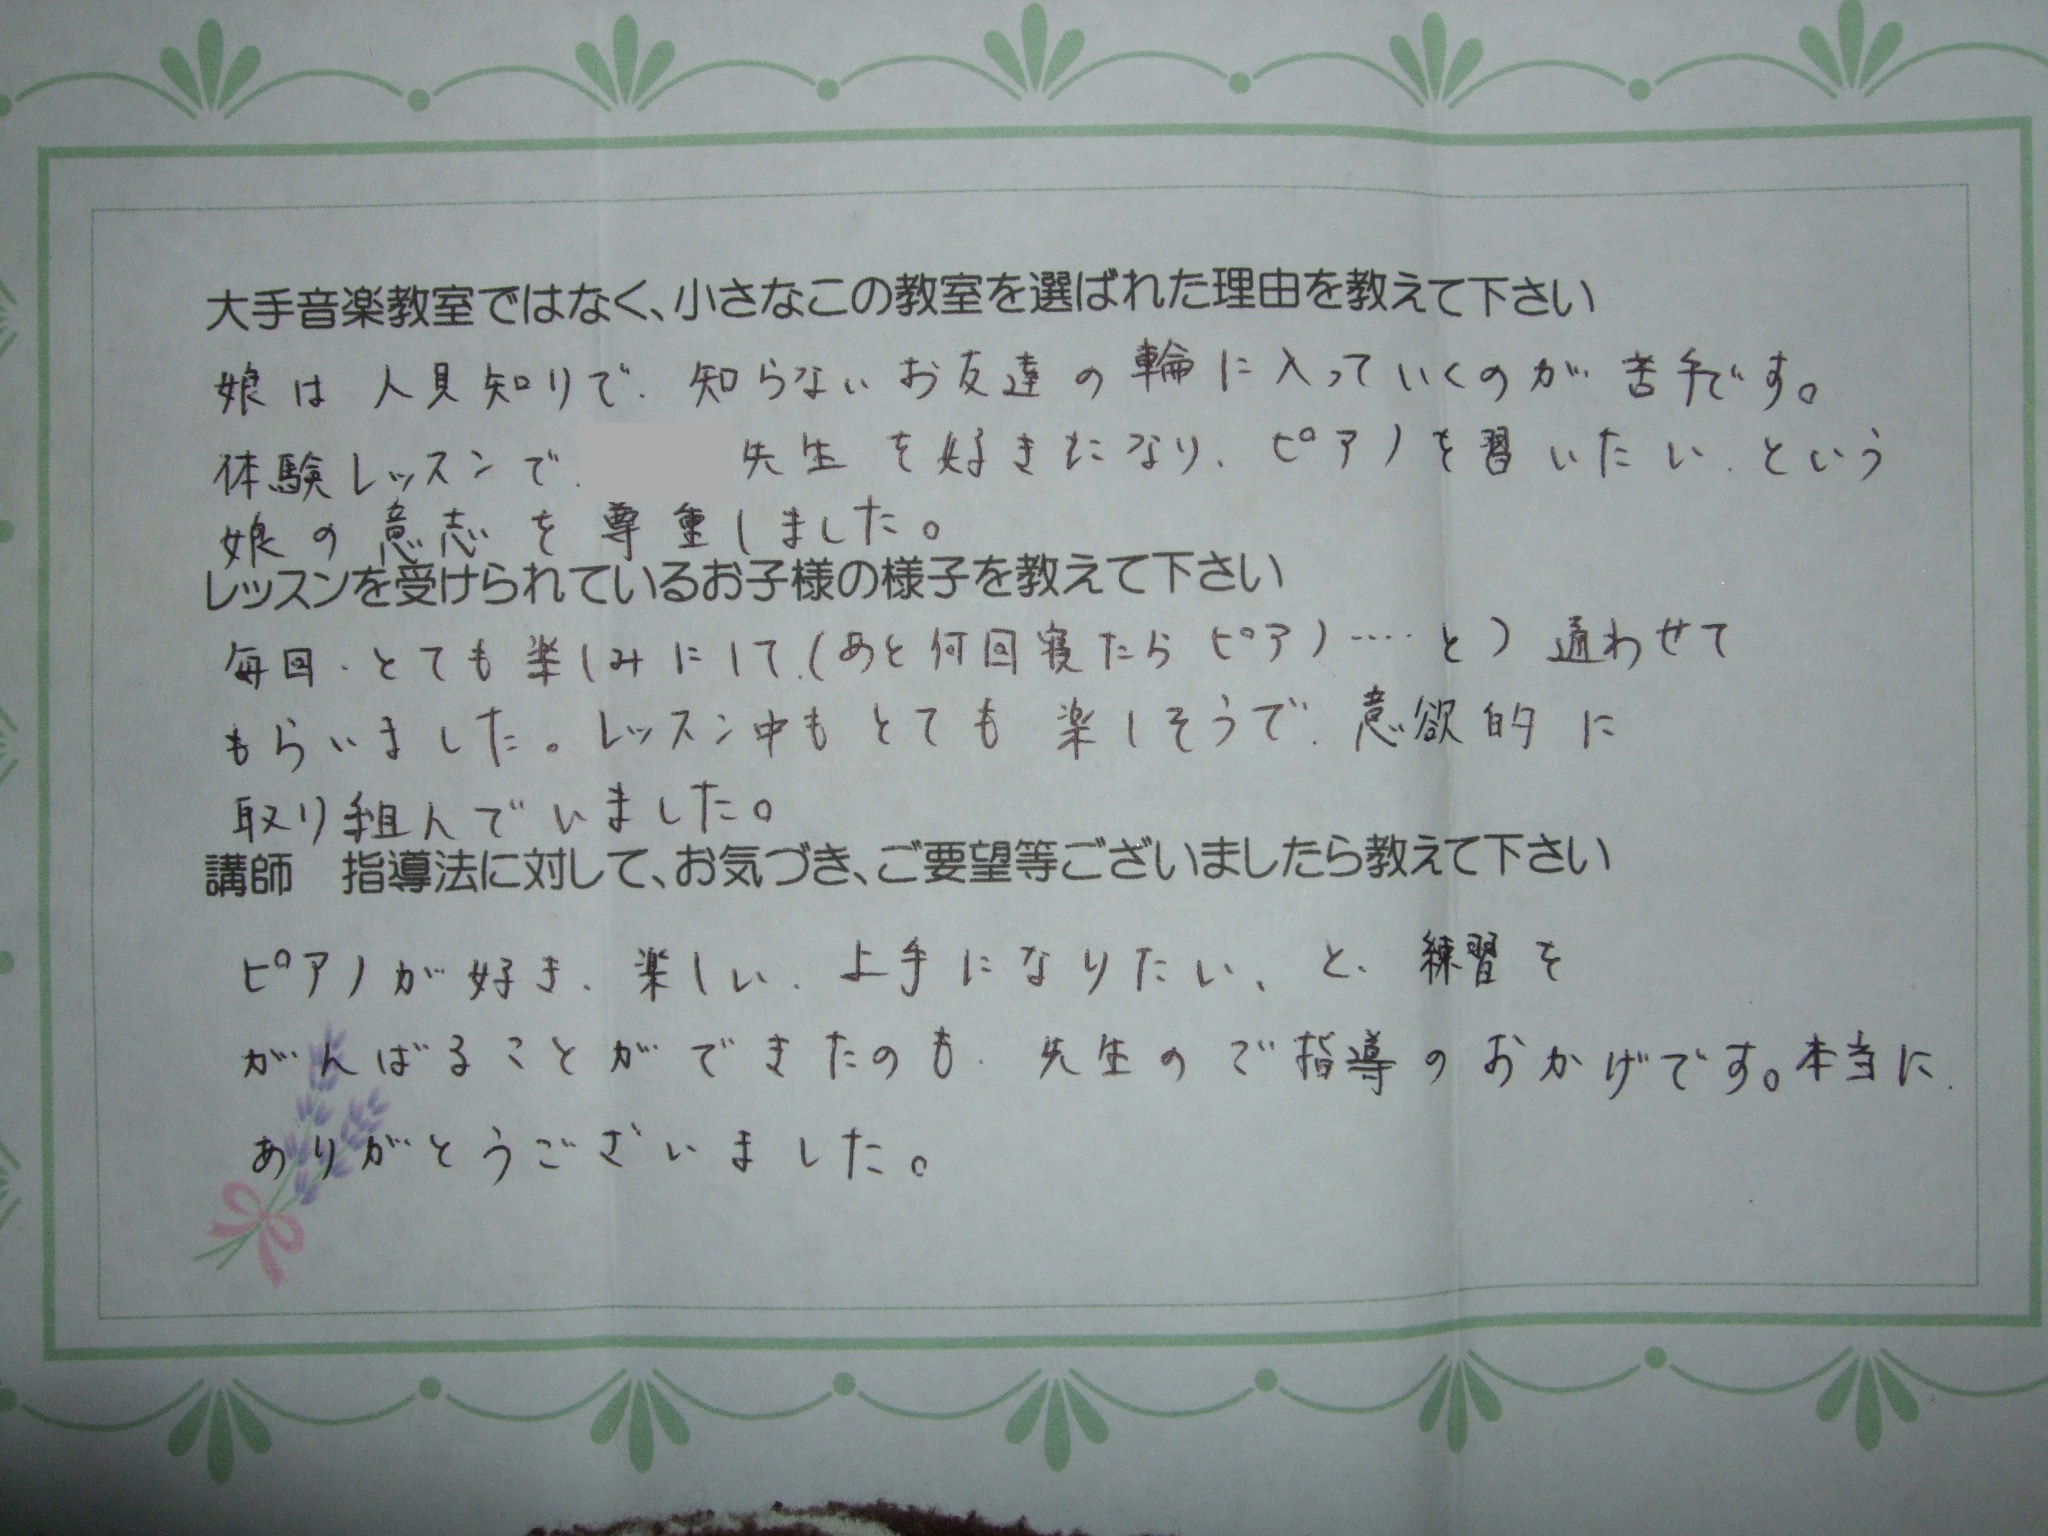 大手音楽教室ではなく、小さなこの教室を選ばれた理由を教えて下さい
娘は人見知りで、知らないお友達の輪に入っていくのが苦手です。
体験レッスンで、先生を好きになり、ピアノを習いたい、という
娘の意志を尊重しました。
レッスンを受けられているお子様の様子を教えて下さい
毎回、とても楽しみにして、(あと何回寝たらピアノ‥‥と) 通わせて
もらいました。レッスン中もとても楽しそうで、意欲的に
取り組んでいました。
講師　指導法に対して、お気づき、ご要望等ございましたら教えて下さい
ピアノが好き、楽しい、上手になりたい、と、練習を
がんばることができたのも、先生のご指導のおかげです。本当に、
ありがとうございました。